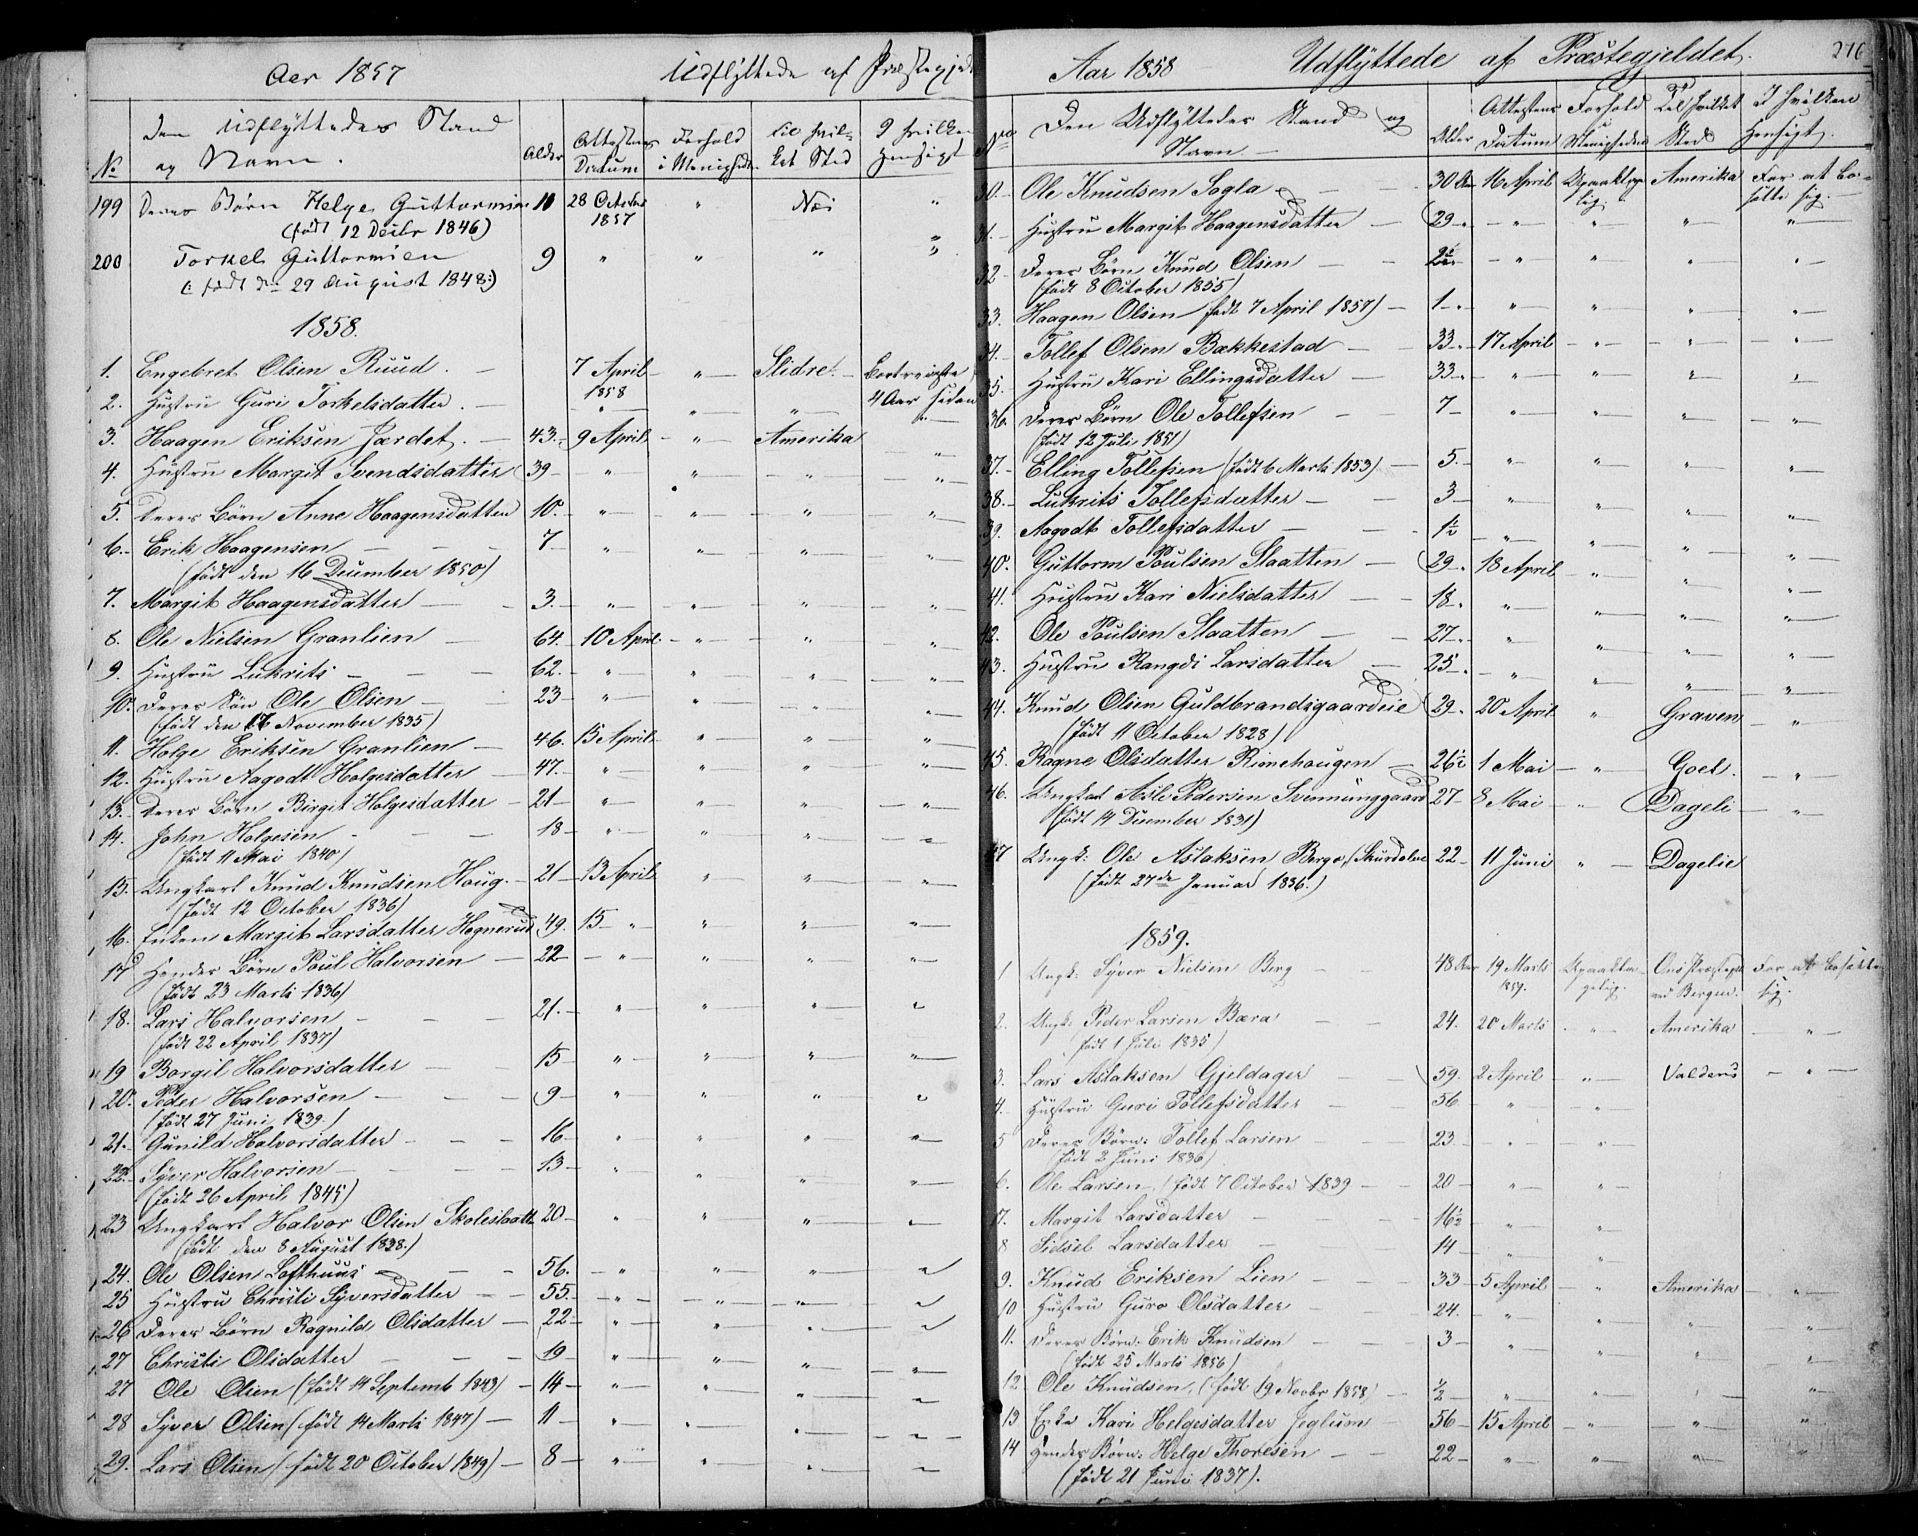 Aar 1857 Udflyttede af Præstegjeld
No. Den Udflyttedes Stand og Navn. Alder Attestens Datum Forhold i Menigheden til hvilket Sted I hvilken Hensigt
199 Deres Børn Helge Guttormsen 11 28 October 1857 " Næs "
(født 12 Decbr 1846)
200 Torkel Guttormsen 9 " " " "
(: født den 29 August 1848:)
1858.
1. Engebret Olsen Ruud. — 7 April 1858 " Slidre. Bortreiste 4 Aar siden
2. Hustru Guri Torkelsdatter. — " " " "
3. Haagen Eriksen Jardet. — 43. 9 April " Amerika "
4. Hustru Margit Svendsdatter 39 " " " "
5. Deres Børn Anne Haagensdatter 10. " " " "
6. Erik Haagensen — 7 " " " "
(født den 16 December 1850)
7. Margit Haagensdatter — 3. " " " "
8. Ole Nielsen Granlien — 64. 10 April " " "
9. Hustru Lukrits — 62. " " " "
10. Deres Søn Ole Olsen — 23 " " " "
(født den 16 November 1835)
11. Holge Eriksen Granlien — 46. 15 April " " "
12. Hustru Aagodt Holgesdatter — 47. " " " "
13. Deres Børn Birgit Holgesdatter — 21 " " " "
14. John Holgesen — 18 " " " "
(født 11 Mai 1840)
15. Ungkarl Knud Knudsen Houg. — 21 13 April " " "
(født 12 October 1836)
16. Enken Margit Larsdatter Hegnerud 49. 15 " " " "
17 Hendes Børn Poul Halvorsen — 22 " " " "
(født 23 Marts 1836)
18. Lars Halvorsen — 21. " " " "
(født 22 April 1837)
19 Borgil Halvorsdatter — 15 " " " "
20. Peder Halvorsen — 9 " " " "
(født 27 Juni 1839.)
21. Gunild Halvorsdatter — 16 " " " "
22. Syver Halvorsen — 13 " " " "
(født 26 April 1845)
23 Ungkarl Halvor Olsen Skoleslaatt 20 " " " "
(født den 8 August 1838.)
24. Ole Olsen Lofthuus — 56. " " " "
25 Hustru Christi Syversdatter — 55. " " " "
26 Deres Børn Ragnild Olsdatter — 22 " " " "
27 Christi Olsdatter — 19 " " " "
27 Ole Olsen (født 14 Septemb 1843) — 14 " " " "
28 Syver Olsen (født 14 Marts 1847) — 11 " " " "
29. Lars Olsen (født 20 October 1849) — 8 " " " "
Aar 1858 Udflyttede af Præstegjeldet. 216
No Den Udflyttedes Stand og Navn. Alder Attestens Datum Forhold i Menigheden Til hvilket Sted I hvilken Hensigt.
30. Ole Knudsen Sogla — 30 Aar 16 April Upaaklagelig. Amerika For at bosætte sig.
31. Hustru Margit Haagensdatter 29 " " " "
32 Deres Børn Knud Olsen — 2½ " " " "
(født 8 October 1855)
33. Haagen Olsen (født 7 April 1857) — 1 " " " "
34. Tollef Olsen Bækkestad — 33 17 April " " "
35. Hustru Kari Ellingsdatter — 33 " " " "
36. Deres Børn Ole Tollefsen — 7 " " " "
(født 12 Juli 1851)
37. Elling Tollefsen (født 6 Marts 1853) — 5. " " " "
38. Lukrits Tollefsdatter — 3 " " " "
39. Aagodt Tollefsdatter — 1½ " " " "
40. Guttorm Poulsen Slaatten — 29 18 April " " "
41. Hustru Kari Nielsdatter — 18 " " " "
42. Ole Poulsen Slaatten — 27 " " " "
43. Hustru Rangdi Larsdatter — 25 " " " "
44. Knud Olsen Guldbrandsgaardeie 29 20 April " Graven "
(født 11 October 1828)
45. Ragne Olsdatter Rimehaugen — 26½ 1 Mai " Goel. "
46. Ungkarl Asle Pedersen Svenunggaard 27 8 Mai " Dageli "
(født 14 December 1831)
47 Ungk: Ole Aslaksen Berge, Skurdalen 22 11 Juni " Dagelie
(født 27de Januar 1836.)
1859.
1 Ungk. Syver Nielsen Berg 48 Aar 19 Marts 1859. Upaaklagelig. Præstegj. ved Bergen. For at bosætte sig.
2. Ungk. Peder Larsen Bæra 24. 20 Marts " Amerika "
(født 1 Juli 1835)
3. Lars Aslaksen Gjeldager 59. 2 April " Valders "
4. Hustru Guri Tollefsdatter — 56 " "
5 Deres Børn: Tollef Larsen 23 " "
(født 2 Juni 1836)
6. Ole Larsen, (født 7 October 1839 — 20 " "
7. Margit Larsdatter — 16½ " "
8 Sidsel Larsdatter — 14 " "
9. Knud Eriksen Lien — 33 5 April " Amerika "
10 Hustru Guro Olsdatter — 24. " " " "
11. Deres Børn: Erik Knudsen — 3 " " " "
(født 25 Marts 1856)
12 Ole Knudsen, (født 19 Novbr 1858) ½ " " " "
13 Enke Kari Helgesdatter Jeglum 56 15 April " " "
14 Hendes Børn: Helge Thoresen — 22 " " " "
(født 21 Juni 1837).